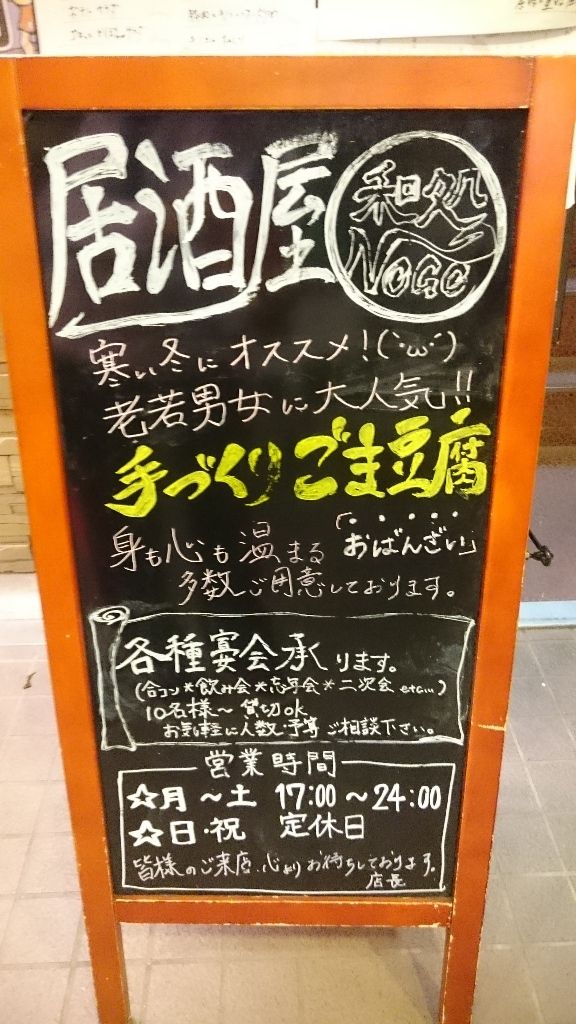 居酒屋
和処
NOGE
寒い冬にオススメ!(´･ω･`)
老若男女に大人気!!
手づくりごま豆腐
身も心も温まる「おばんざい」
多数ご用意しております。
各種宴会承ります。
(合コン*飲み会*忘年会*二次会 etc...)
10名様〜貸切OK
お気軽に人数・予算ご相談下さい。
営業時間
☆月〜土 17:00〜24:00
☆日・祝 定休日
皆様のご来店、心よりお待ちしております。
店長